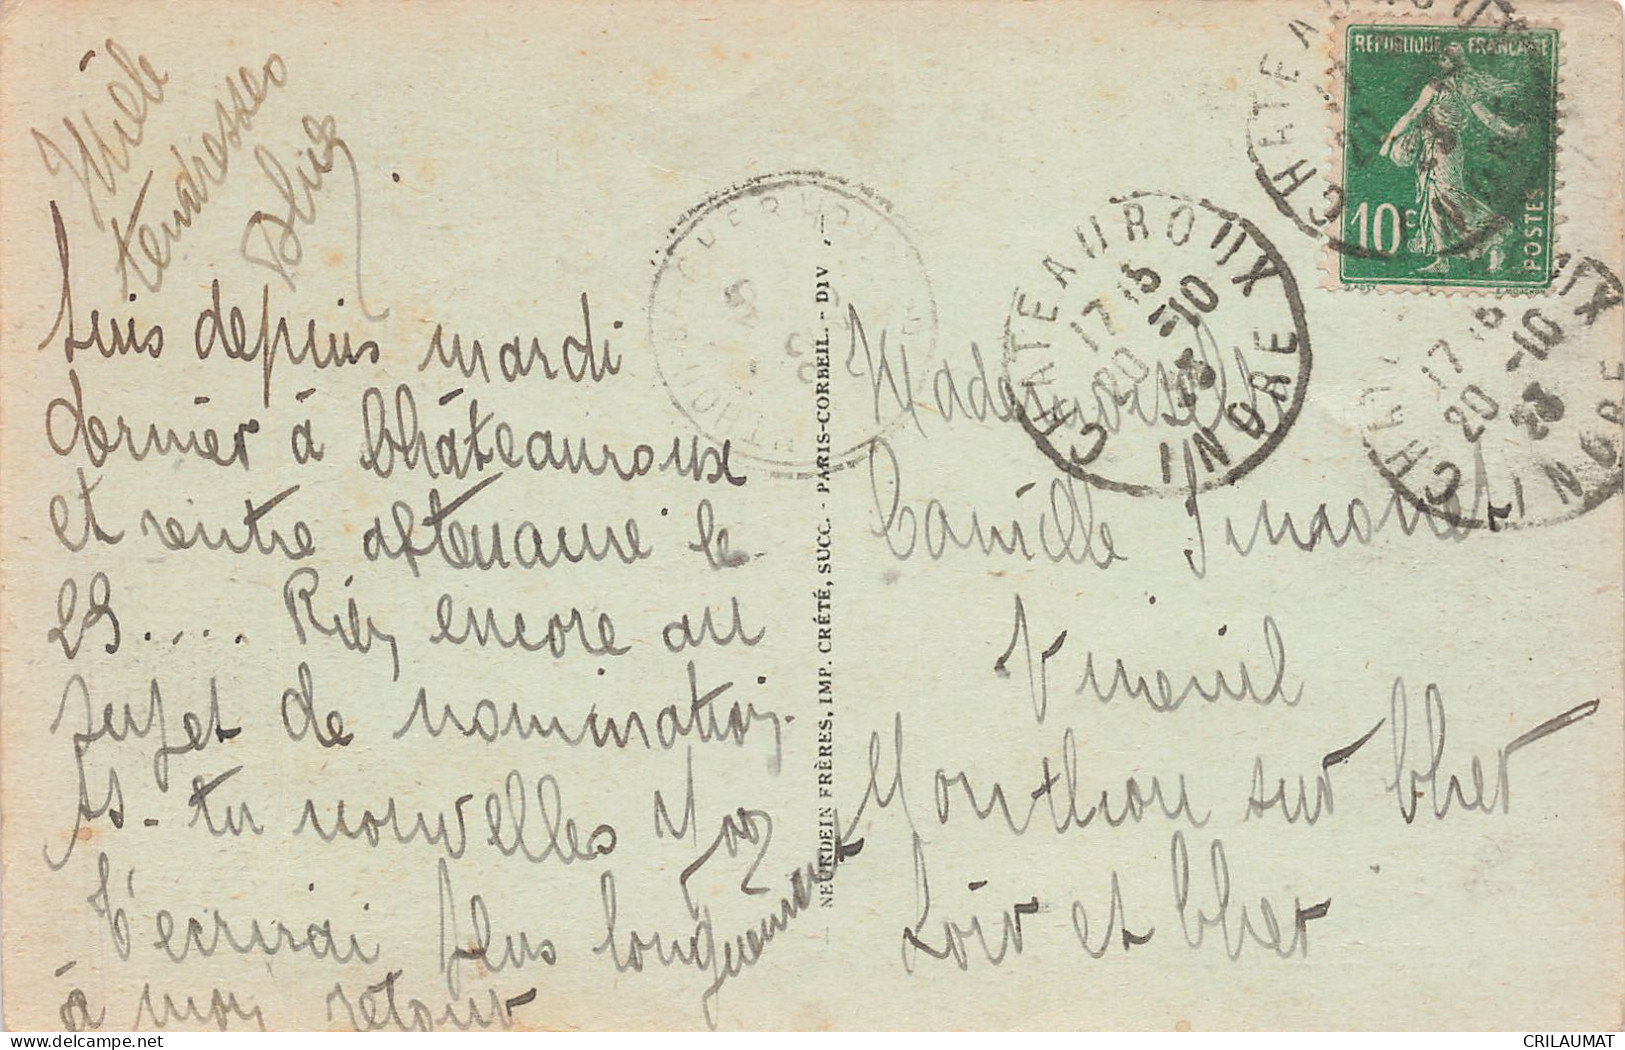 Mille
tendresses
Suis depuis mardi
dernier à Châteauroux
et rentre aptenanie le
29.... Rien encore au
sujet de nomination.
As-tu nouvelles
T'écrirai plus longuement
à mon retour
NEURDEIN FRÈRES, IMP. CRÉTÉ, SUCC. - PARIS-CORBEIL. - DIV
CHATEAUROUX
17 15
20 -10
23
INDRE
CHATEAUROUX
INDRE
RÉPUBLIQUE FRANÇAISE
10c
POSTES
CHATEAUROUX
17 15
20 -10
23
INDRE
Mademoiselle
Camille Simonet
Vineuil
Monthou sur Cher
Loir et Cher
CRILAUMAT